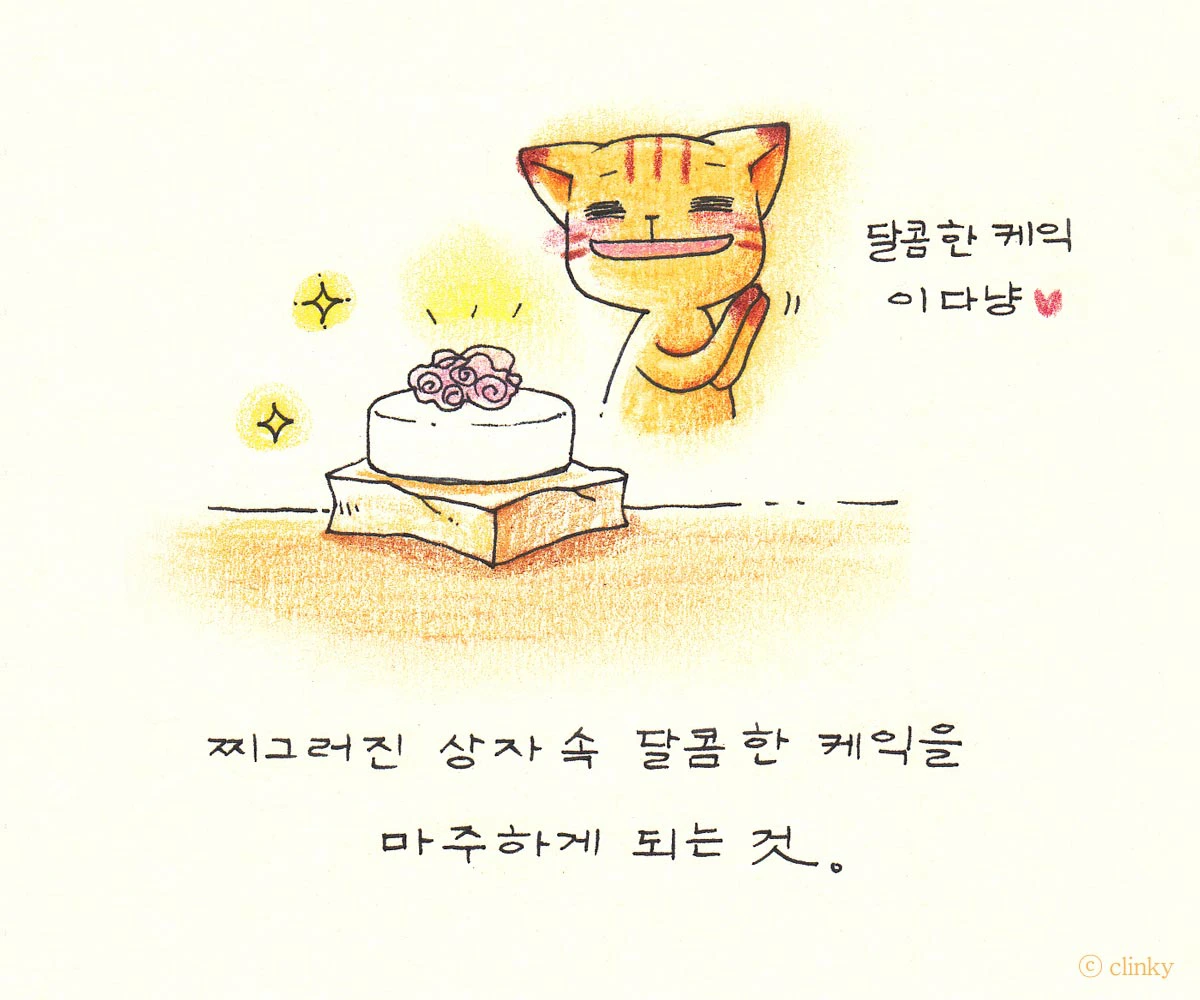 달콤한 케익
이다냥
찌그러진 상자 속 달콤한 케익을
마주하게 되는 것。
ⓒ clinky